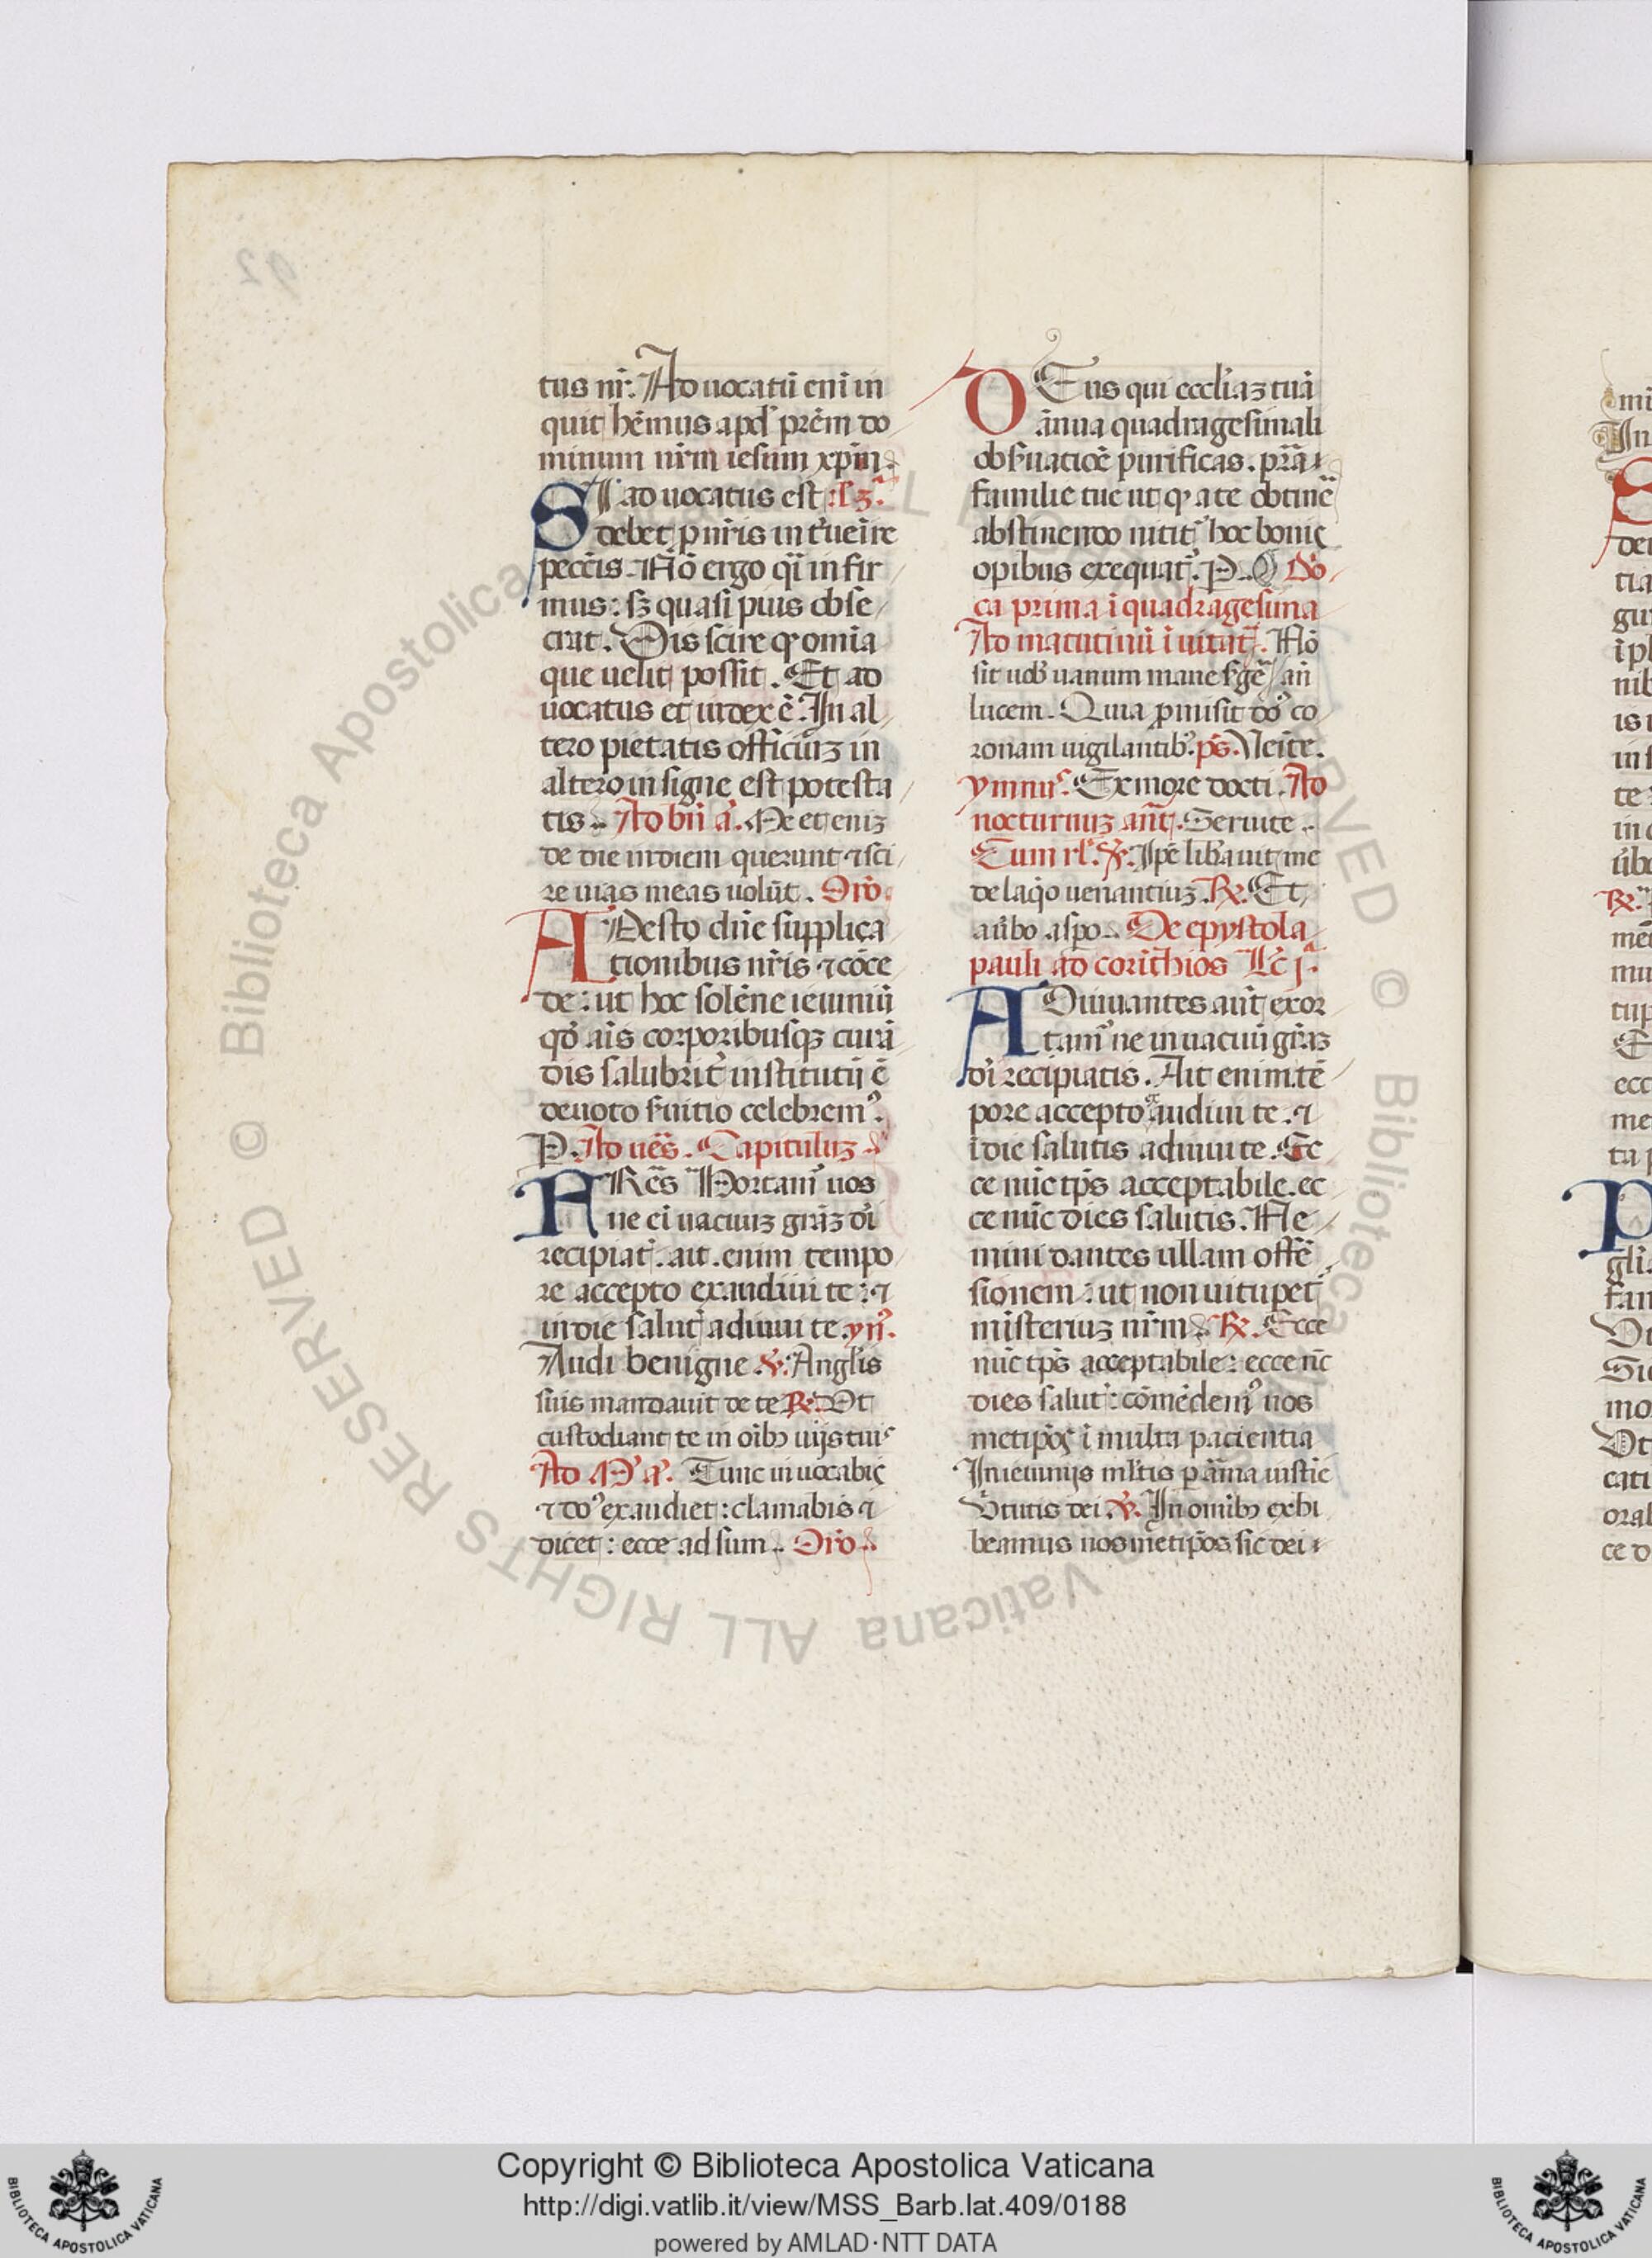 tus nr̄. Ad uocatū eni in
quit hēmus apd' prēm do
minum nrm̄ iesum xpm̄.
SI ad uocatus est
debet p nrīs int'ueīre
peccīs. Nō ergo q̄i infir
mus: sꝫ quasi pius obse
crat. Uis scire qꝫ omīa
que uelit possit. Et ad
uocatus et iudex ē. In al
tero pietatis officiūꝫ in
altero insigne est potesta
tis. Ad bn̄ a. Me et eniꝫ
de die in diem querunt ⁊ sci
re uias meas uolūt. Orō.
ADesto dn̄e supplica
tionibus nrīs ⁊ cōce
de: ut hoc solēne ieiuniū
qd̄ aīs corporibusqꝫ curā
dis salubrit' institutū ē
deuoto s'uitio celebrem⁹.
P. Ad ues̄. Capituluꝫ
FRēs Hortam⁹ uos
ne ī uacuuꝫ grāꝫ dī
recipiat̄. ait. enim tempo
re accepto exaudiui te: ⁊
in die salut' adiuui te. yn̄.
Audi benigne ℣. Anglīs
suis mandauit de te ℟. Ut
custodiant te in oībꝫ uijs tuis
Ad M̄ a. Tunc inuocabis
⁊ do⁹ exaudiet: clamabis ⁊
dicet: ecce adsum. Orō
DEus qui ecclīaꝫ tuā
ānua quadragesimali
obs'uatiōe purificas. prā
familie tue ut qꝫ a te obtinē
abstinendo nitit' hoc bonis
opibus exequat'. P. Dō
ca prima ī quadragesima
Ad matutinū īuitat'. Nō
sit uob' uanum mane s'gē an̄
lucem. Quia pmisit do⁹ co
ronam uigilantibꝫ. ps̄. Ueīte.
ymnus. Ex more docti. Ad
nocturnuꝫ an̄t. Seruite.
Cum rl'. ℣. Ipē lib'auit me
de laq̄o uenantiuꝫ. ℟. Et
a u'bo asp̄o. De epystola
pauli ad corinthios Lc̄ j.
ADiuuantes aūt exor
tam⁹ ne in uacuū grāꝫ
dī recipiatis. Ait enim. tē
pore accepto exaudiui te. ⁊
ī die salutis adiuui te. Ec
ce nūc tp̄s acceptabile. ec
ce nūc dies salutis. Ne
mini dantes ullam offē
sionem: ut non uitupet'
misteriuꝫ nrm̄ ℟. Ecce
nūc tp̄s acceptabile: ecce nc̄
dies salut': cōmēdem⁹ nos
metipōs ī multa pacientia
In ieiunijs ml'tis p arma iustic̄
U'tutis dei. ℣. In omībꝫ exhi
beamus nosmetipōs sic dei
Copyright © Biblioteca Apostolica Vaticana
http://digi.vatlib.it/view/MSS_Barb.lat.409/0188
powered by AMLAD·NTT DATA